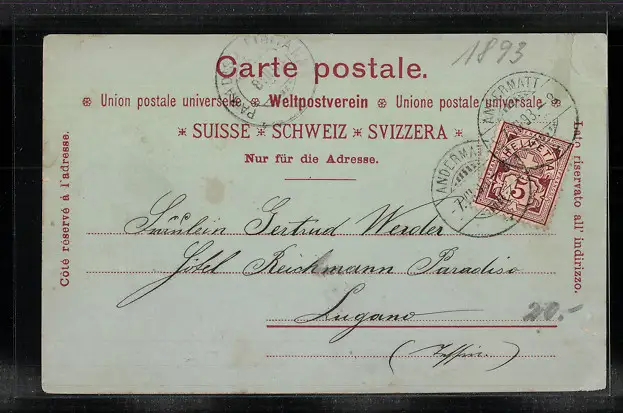 1893
Carte postale.
Union postale universelle Weltpostverein Unione postale universale
SUISSE SCHWEIZ SVIZZERA
Nur für die Adresse.
Côté réservé à l'adresse.
Lato riservato all' indirizzo.
ANDERMATT
ANDERMATT
HELVETIA
5
Fräulein Gertrud Werder
Hôtel Reichmann Paradiso
Lugano
20.-
(Tessin.)